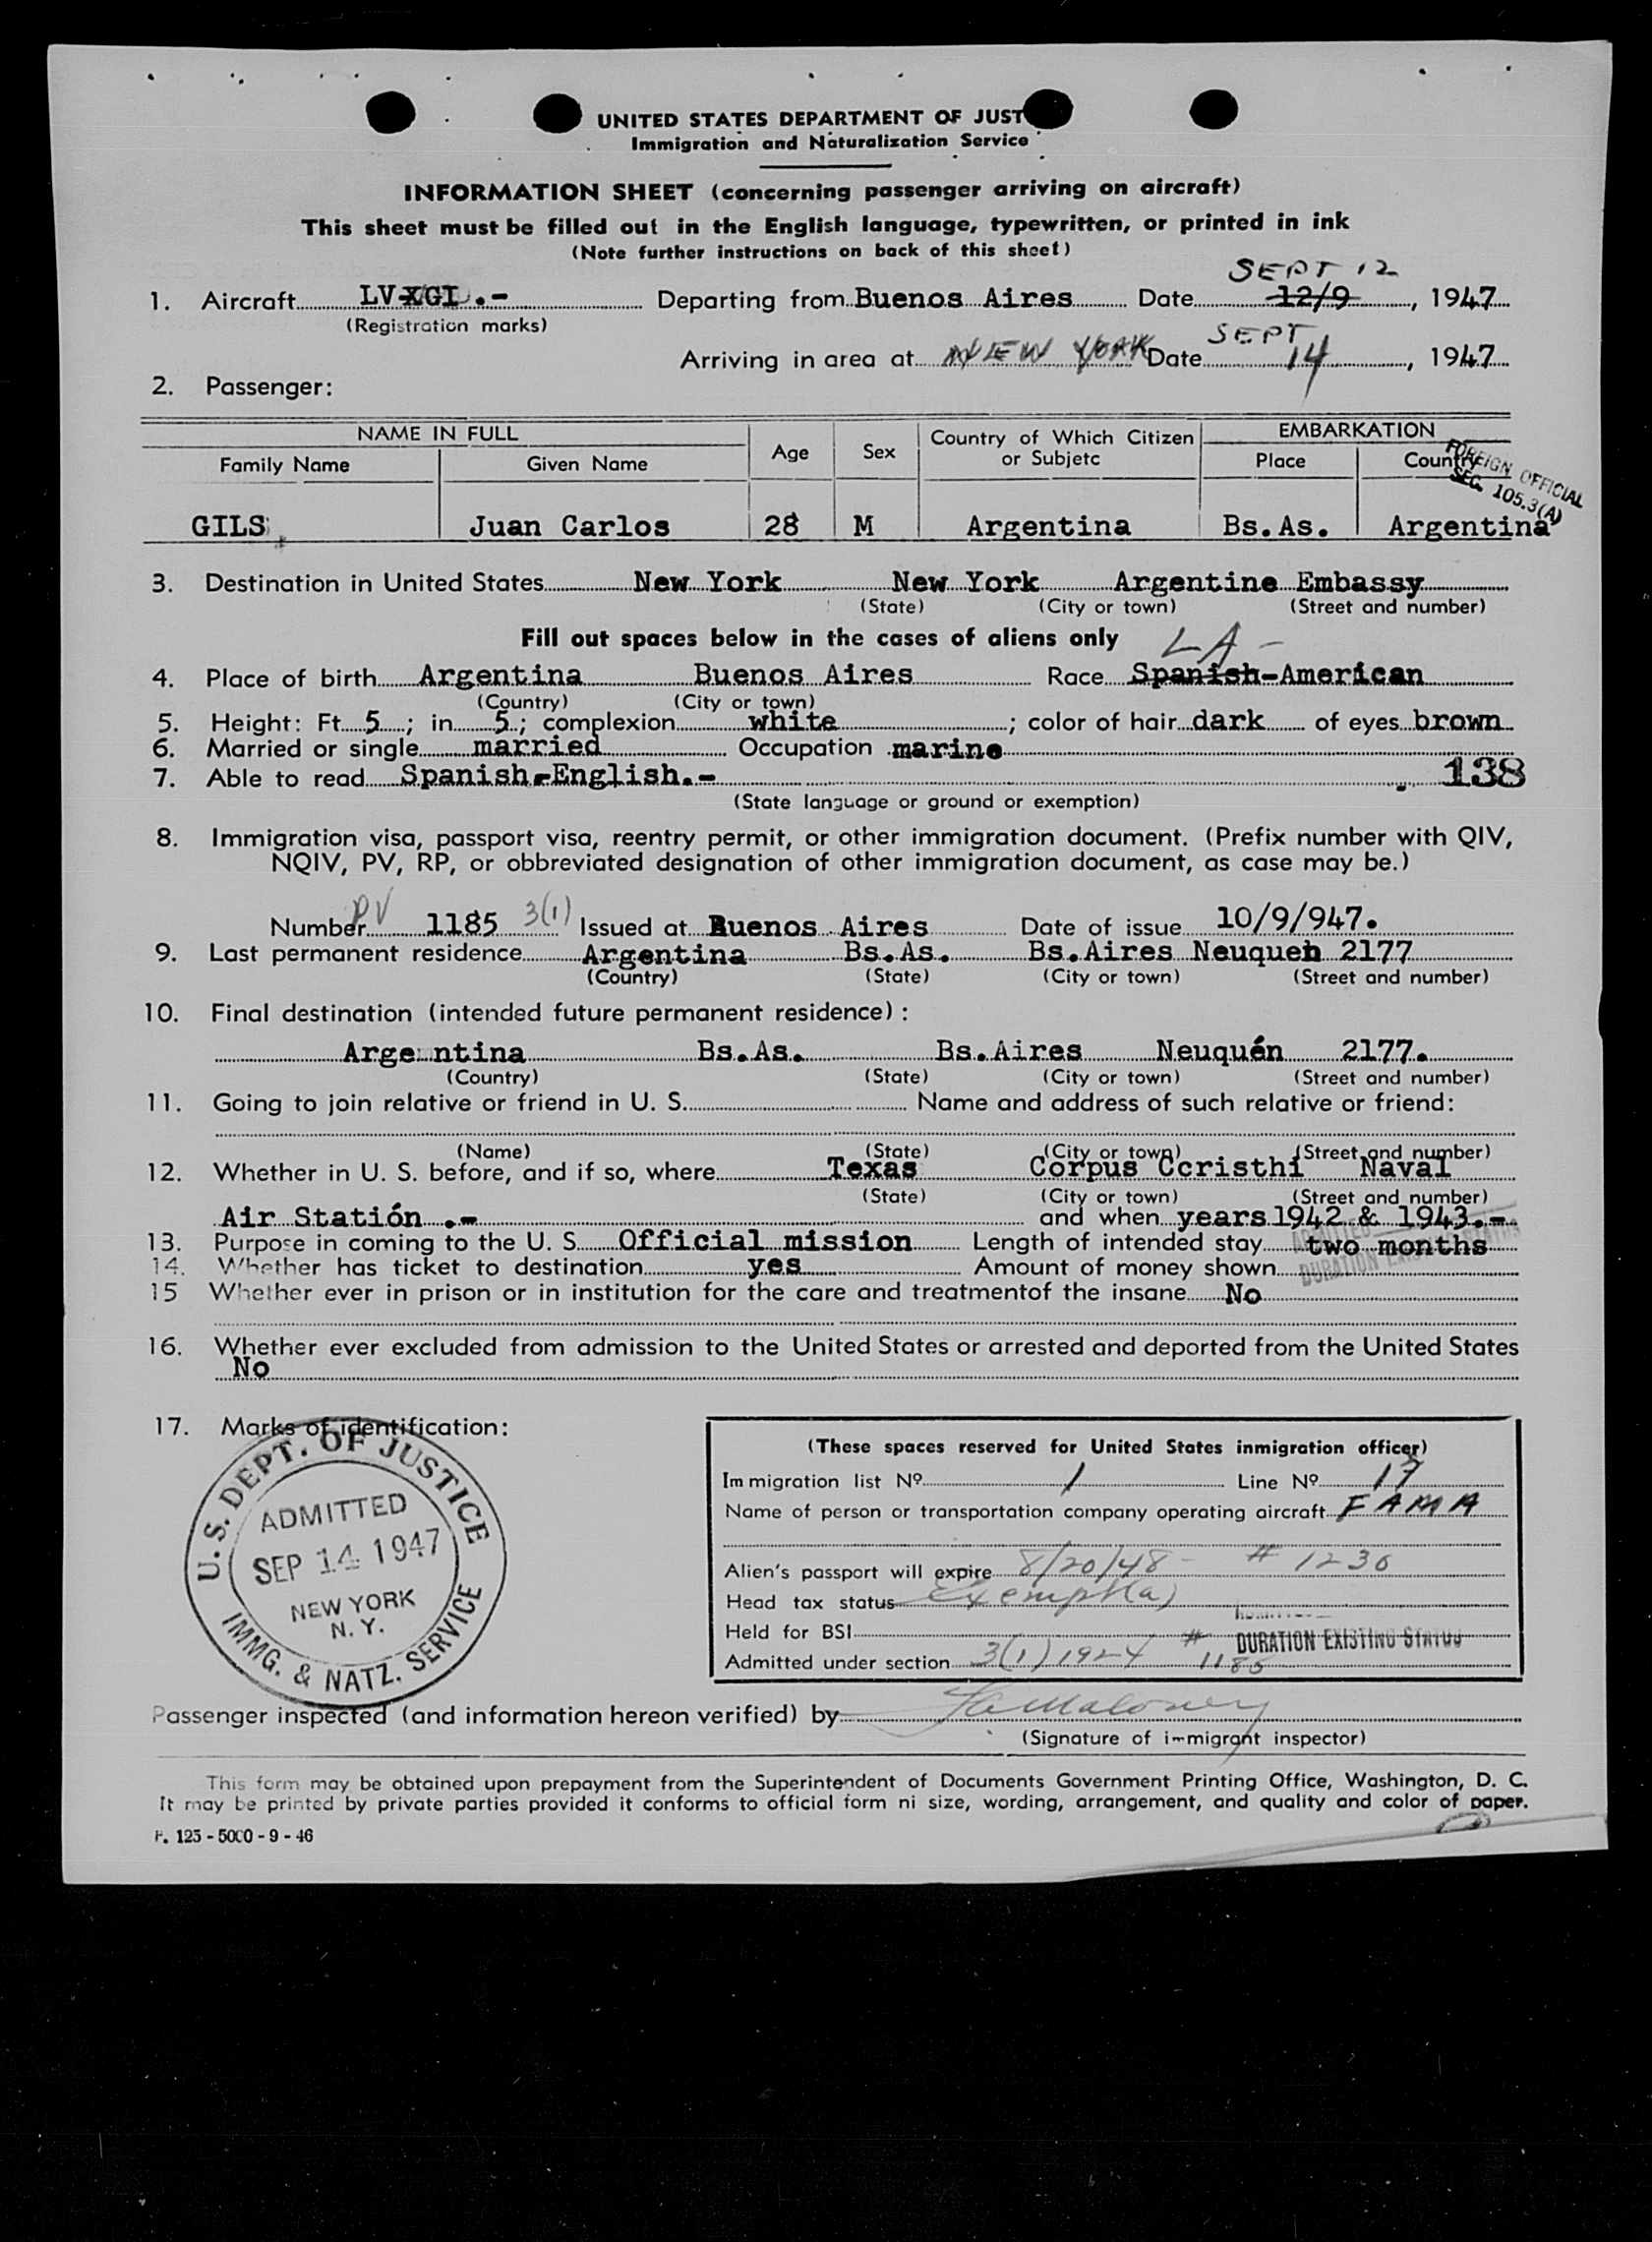 UNITED STATES DEPARTMENT OF JUST
Immigration and Naturalization Service
INFORMATION SHEET (concerning passenger arriving on aircraft)
This sheet must be filled out in the English language, typewritten, or printed in ink
(Note further instructions on back of this sheet)
SEPT 12
1. Aircraft LV-XGI.- Departing from Buenos Aires Date 12/9, 1947
(Registration marks)
SEPT
Arriving in area at NEW YORK Date 14, 1947
2. Passenger:
NAME IN FULL Age Sex Country of Which Citizen or Subjetc EMBARKATION
Family Name Given Name Place Country
FOREIGN OFFICIAL
SEC. 105.3(A)
GILS Juan Carlos 28 M Argentina Bs.As. Argentina
3. Destination in United States New York New York Argentine Embassy
(State) (City or town) (Street and number)
Fill out spaces below in the cases of aliens only LA-
4. Place of birth Argentina Buenos Aires Race Spanish-American
(Country) (City or town)
5. Height: Ft. 5; in. 5.; complexion white; color of hair dark of eyes brown
6. Married or single married Occupation marine
7. Able to read Spanish-English.- 138
(State language or ground or exemption)
8. Immigration visa, passport visa, reentry permit, or other immigration document. (Prefix number with QIV,
NQIV, PV, RP, or obbreviated designation of other immigration document, as case may be.)
Number PV 1185 3(1) Issued at Buenos Aires Date of issue 10/9/947.
9. Last permanent residence Argentina Bs.As. Bs.Aires Neuqueh 2177
(Country) (State) (City or town) (Street and number)
10. Final destination (intended future permanent residence):
Arge ntina Bs.As. Bs.Aires Neuquén 2177.
(Country) (State) (City or town) (Street and number)
11. Going to join relative or friend in U. S. Name and address of such relative or friend:
(Name) (State) (City or town) (Street and number)
12. Whether in U. S. before, and if so, where Texas Corpus Ccristhi Naval
(State) (City or town) (Street and number)
Air Statión .- and when years 1942 & 1943.-
13. Purpose in coming to the U. S. Official mission Length of intended stay two months
14. Whether has ticket to destination yes Amount of money shown
15 Whether ever in prison or in institution for the care and treatmentof the insane No
16. Whether ever excluded from admission to the United States or arrested and deported from the United States
No
17. Marks of identification:
U.S. DEPT. OF JUSTICE
ADMITTED
SEP 14 1947
NEW YORK
N. Y.
IMMG. & NATZ. SERVICE
(These spaces reserved for United States inmigration officer)
Immigration list Nº 1 Line Nº 17
Name of person or transportation company operating aircraft FAMA
Alien's passport will expire 8/20/48 - # 1236
Head tax status exempt(a)
Held for BSI # DURATION EXISTING STATUS
Admitted under section 3(1) 1924 1185
Passenger inspected (and information hereon verified) by
(Signature of immigrant inspector)
This form may be obtained upon prepayment from the Superintendent of Documents Government Printing Office, Washington, D. C.
It may be printed by private parties provided it conforms to official form ni size, wording, arrangement, and quality and color of paper.
F. 125 - 5000 - 9 - 46